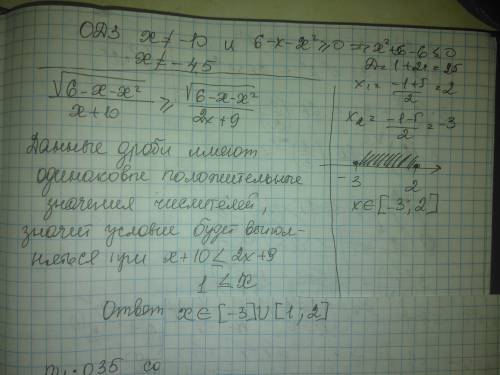 ОДЗ x ≠ -10 и 6-x-x² ≥ 0 => x²+x-6 ≤ 0
x ≠ -4,5
D = 1+24 = 25
x₁ = (-1+5)/2 = 2
x₂ = (-1-5)/2 = -3
-3 2
x∈[-3; 2]
√(6-x-x²)/(x+10) ≥ √(6-x-x²)/(2x+9)
Данные дроби имеют
одинаковые положительные
значения числителей,
значит условие будет выпол-
няться при x+10 ≤ 2x+9
1 ≤ x
Ответ x∈[-3]∪[1; 2]